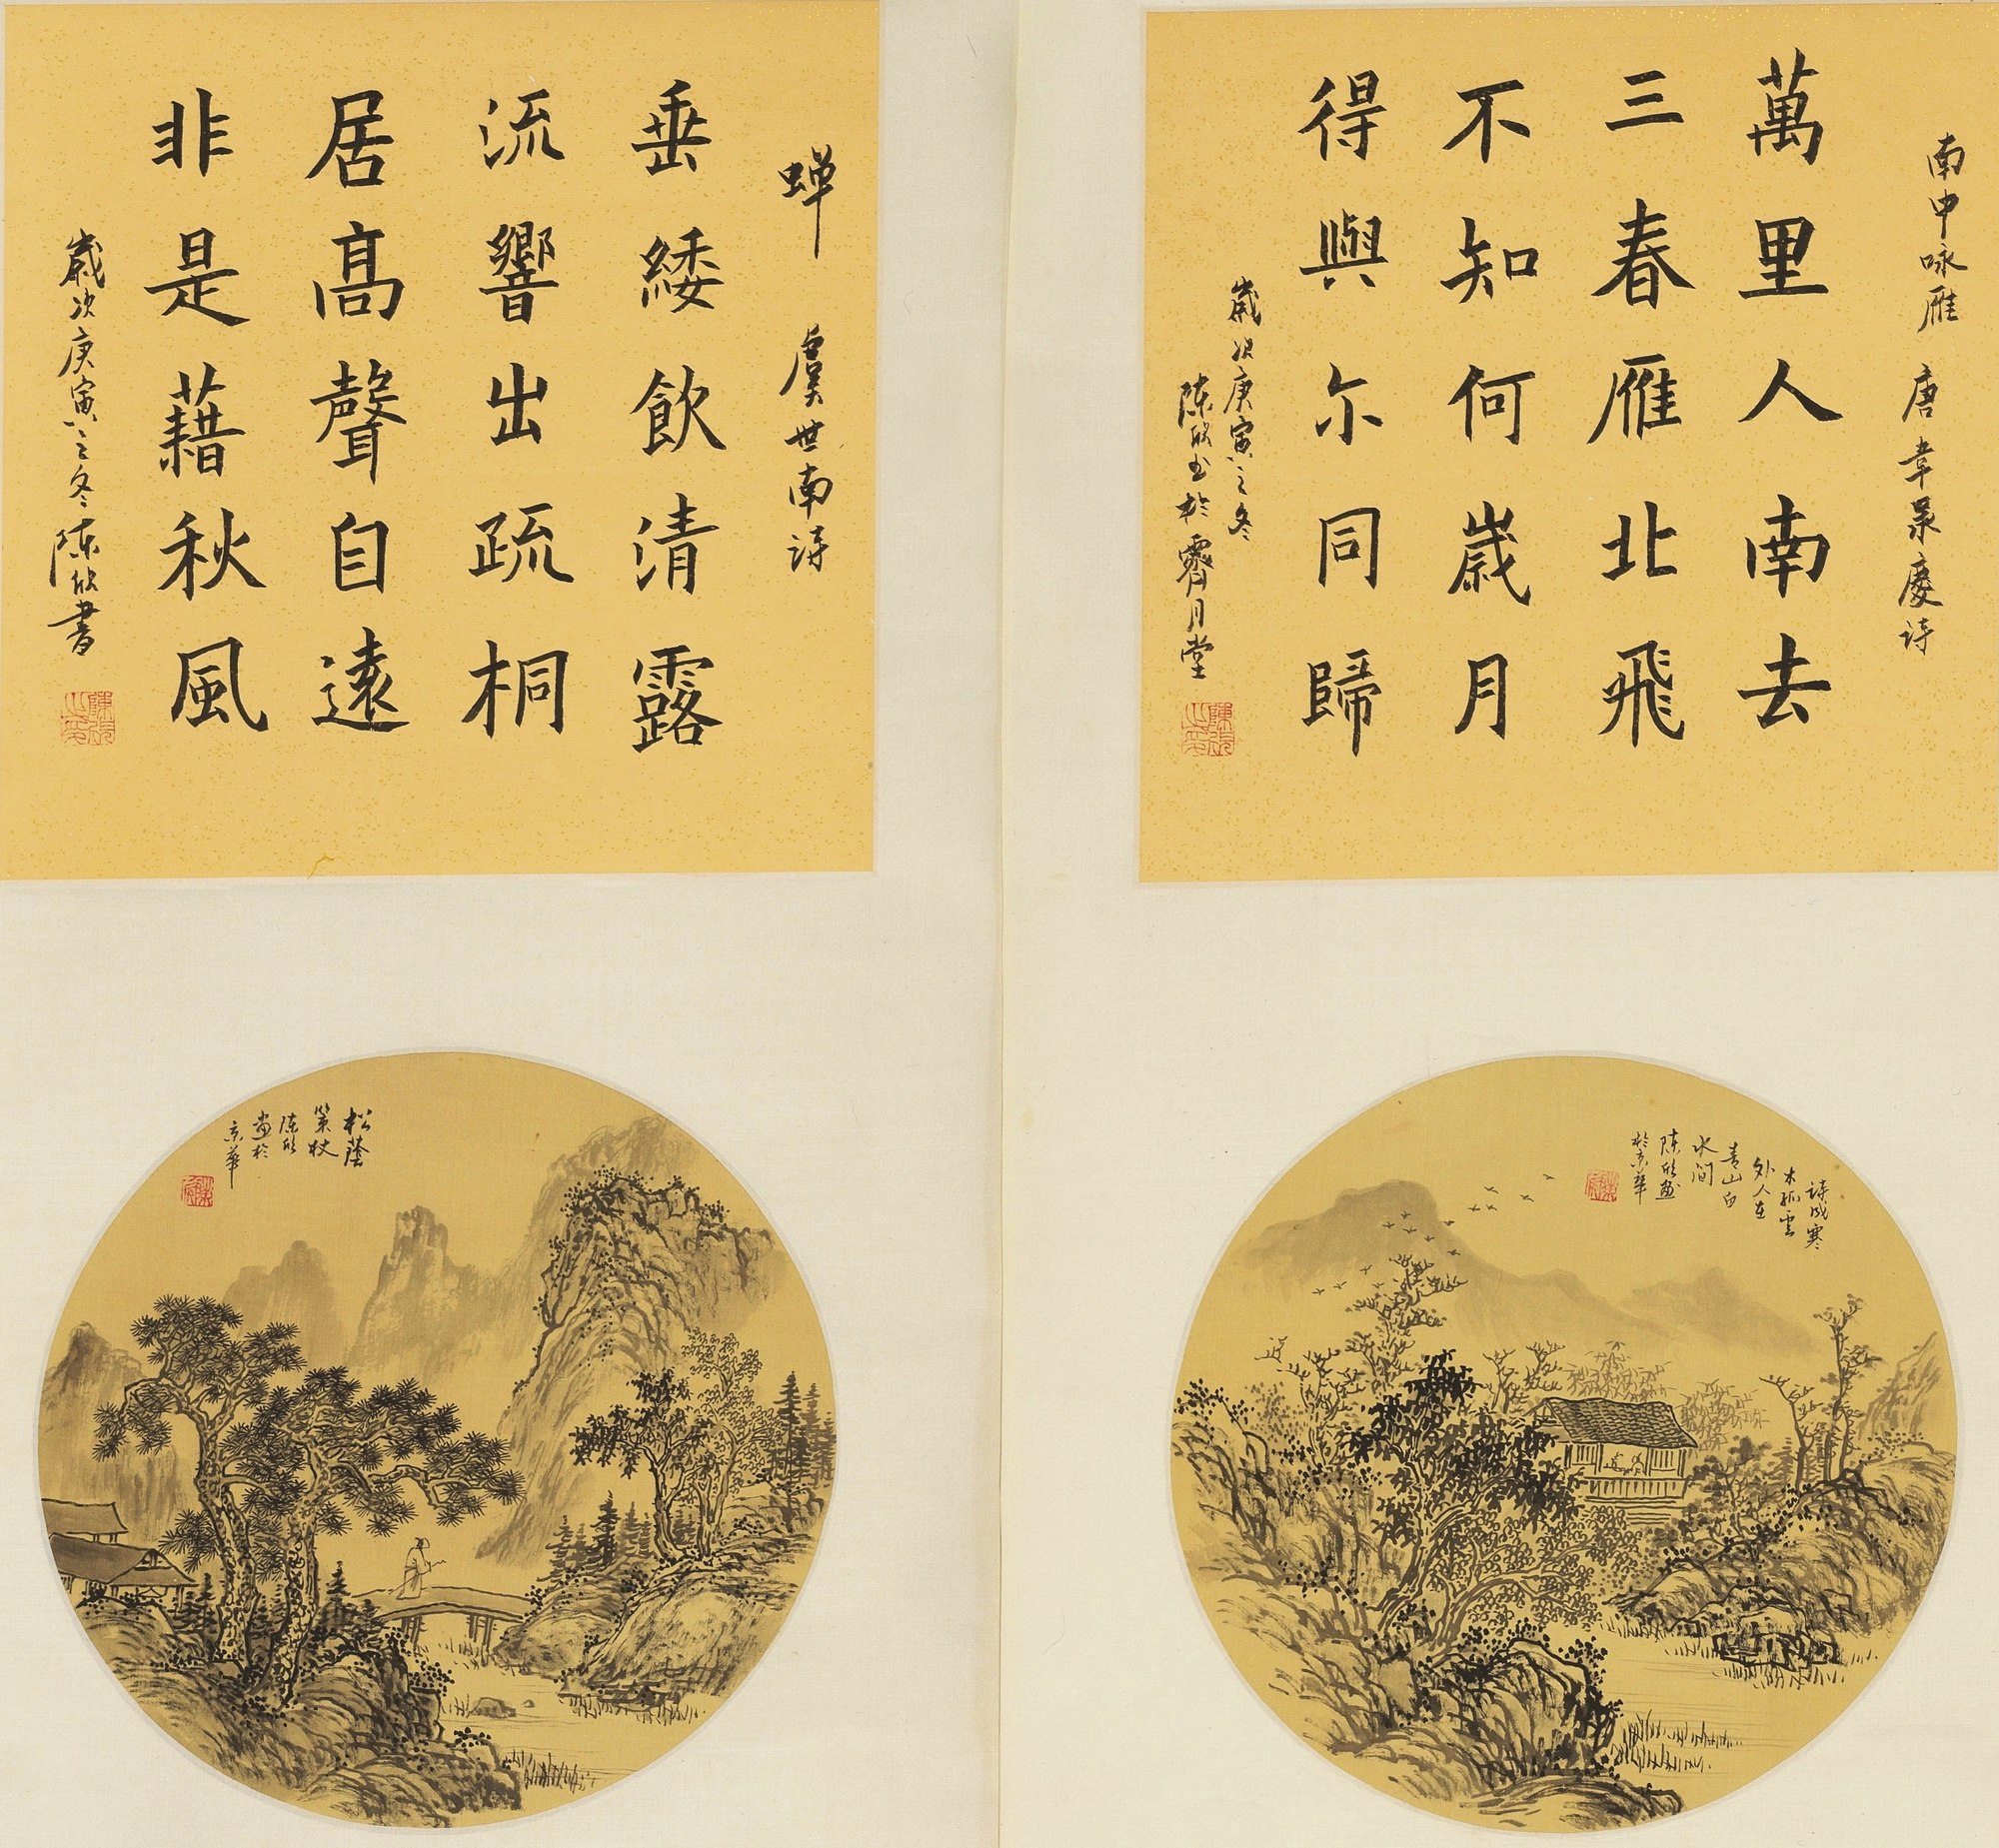 南中咏雁 唐韋承慶詩
萬里人南去
三春雁北飛
不知何歲月
得與尓同歸
歲次庚寅之冬
陈欣书於霽月堂
蝉 虞世南诗
垂緌飲清露
流響出疏桐
居髙聲自遠
非是藉秋風
歲次庚寅之冬陈欣書
诗成寒
木孤雲
外人在
青山白
水间
陈欣画
於京華
松蔭
策杖
陈欣
画於
京華